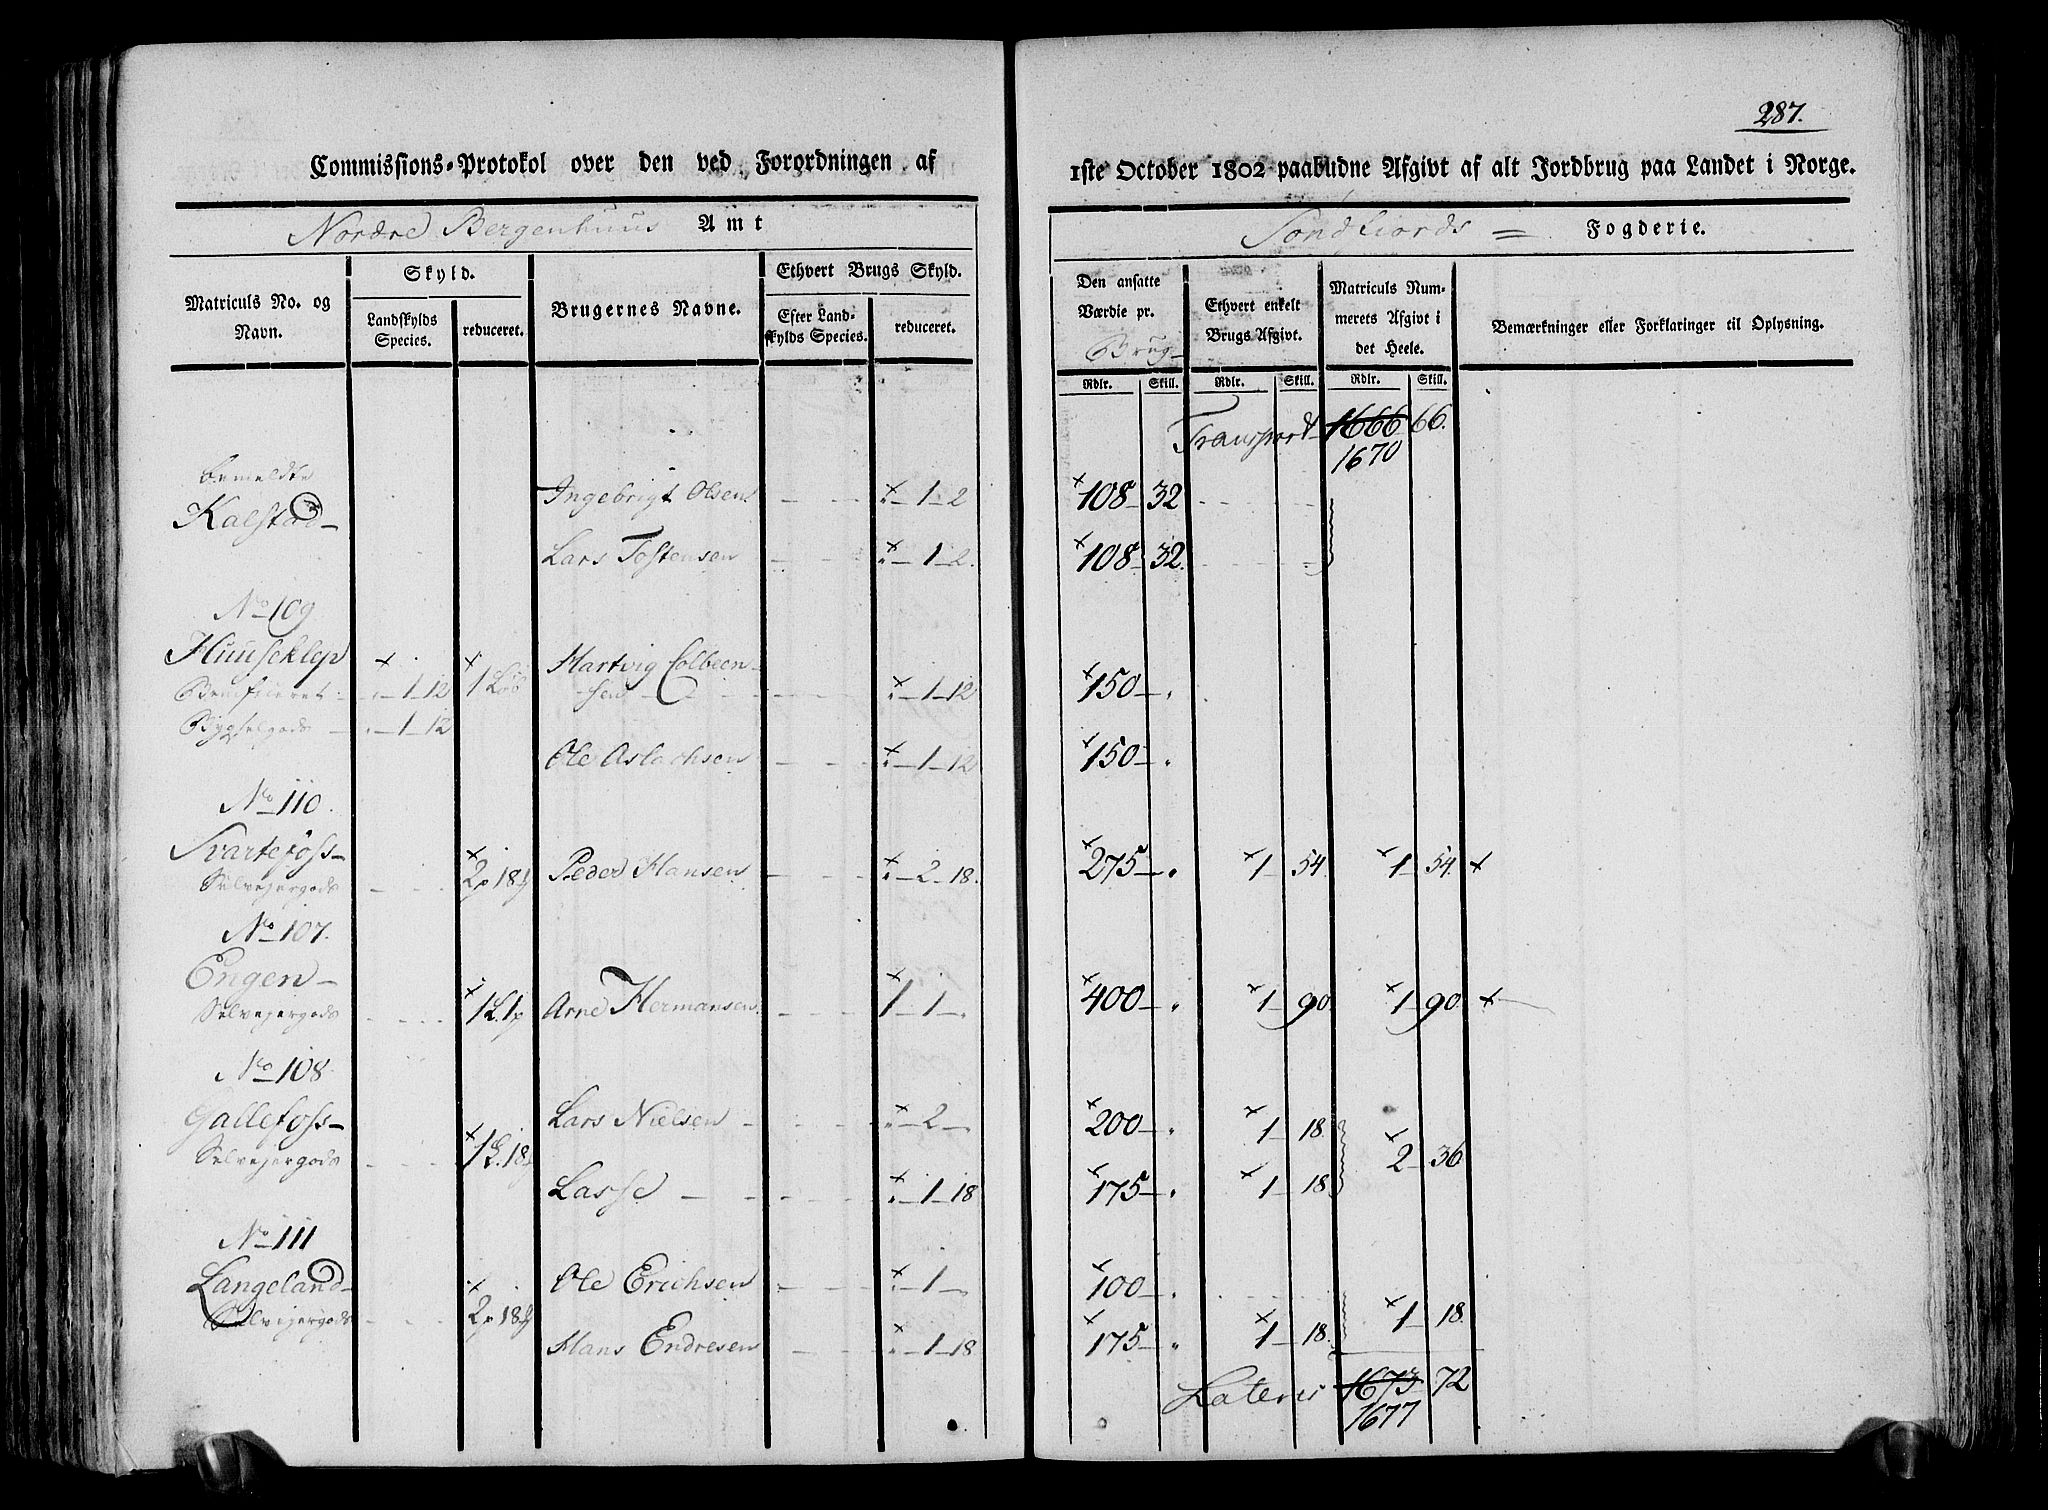 287.
Commissions-Protokol over den ved Forordningen af
1ste October 1802 paabudne Afgivt af alt Jordbrug paa Landet i Norge.
Nordre Bergenhuus Amt
Søndfiords = Fogderie.
Matriculs No. og Navn.
Skyld.
Landskylds Species.
reduceret.
Brugernes Navne.
Ethvert Brugs Skyld.
Efter Landskylds Species.
reduceret.
Den ansatte Værdie pr. Brug
Ethvert enkelt Brugs Afgivt.
Matriculs Nummerets Afgivt i det Heele.
Bemærkninger eller Forklaringer til Oplysning.
Rdlr. Skill. Rdlr. Skill. Rdlr. Skill.
Transport 1666 66.
1670
bemeldte
Kalstad
Ingebrigt Olsen - - - 1 - 2 108 - 32
Lars Tostensen - - - 1 - 2. 108 - 32.
No 109
Huuseklep
Beneficeret - 1 - 12
Hartvig Colbeen-
sen - - - 1 - 12 150 -
Bygselgods - 1 - 12
Ole Aslachsen - - - 1 - 12 150 -
No 110.
Svartefoss
Selvejergods - - 2 p 18
Peder Hansen - - - 2 - 18. 275 - 1 - 54. 1 - 54. +
No 107.
Engen
Selvejergods - - 1 L. 1 p
Arne Hermansen - - 1 - 1 - 400 - 1 - 90. 1 - 90. +
No 108
Gallefoss
Selvejergods - - 1 L. 18
Lars Nielsen - - - 2 - 200 - 1 - 18.
2 - 36
Lasse - - - 1 - 18 175 - 1 - 18.
No 111
Langeland
Selvejergods - - 2 p 18
Ole Erichsen - - - 1 - 100 -
1 - 18.
Hans Endresen - - - 1 - 18 175 - 1 - 18.
Lateris 1673 72
1677